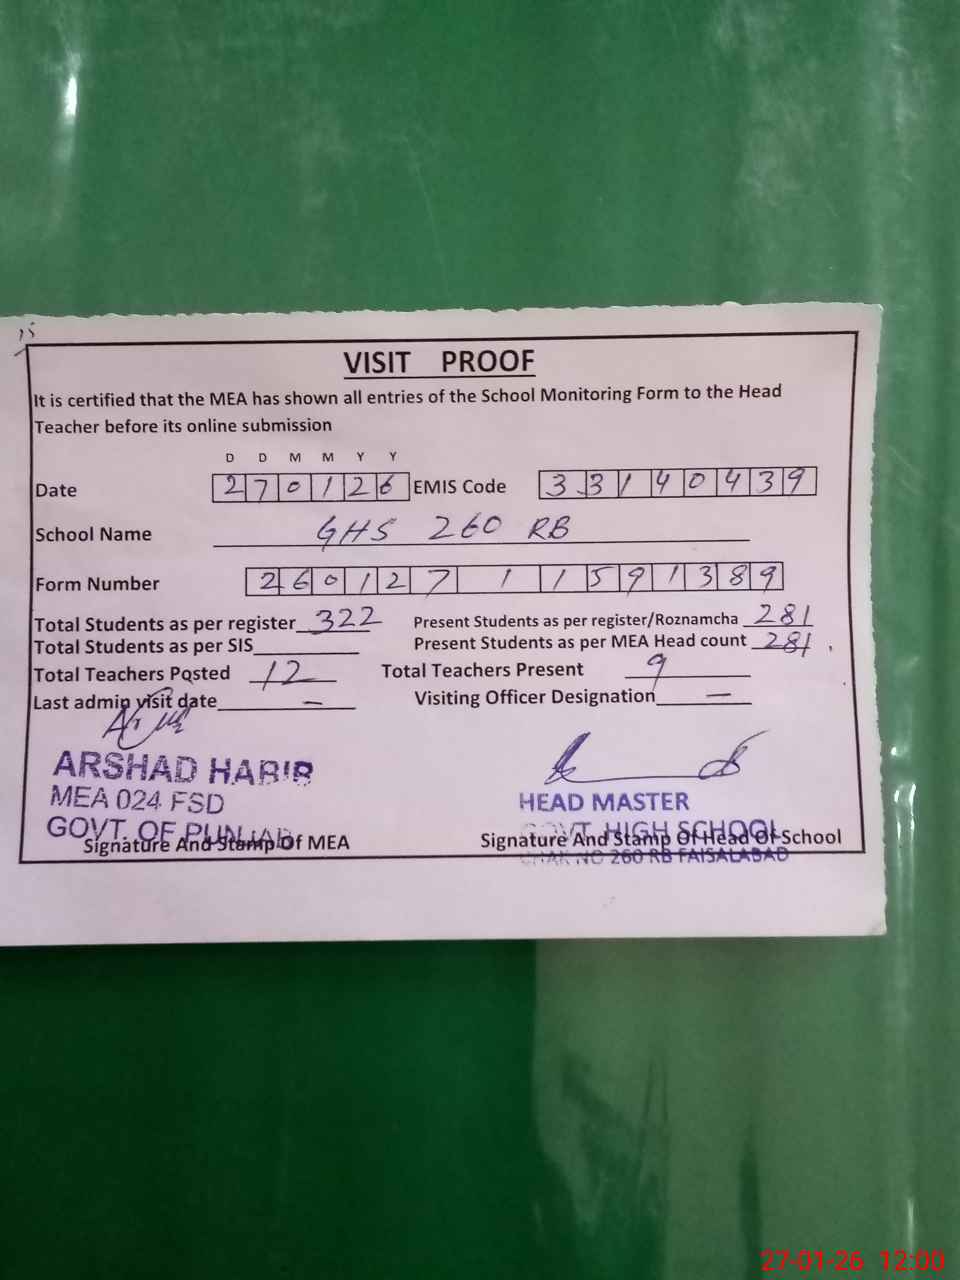 VISIT PROOF
It is certified that the MEA has shown all entries of the School Monitoring Form to the Head
Teacher before its online submission
D D M M Y Y
Date 270126 EMIS Code 33140439
School Name GHS 260 RB
Form Number 260127 1 1591389
Total Students as per register 322 Present Students as per register/Roznamcha 281
Total Students as per SIS Present Students as per MEA Head count 281
Total Teachers Posted 12 Total Teachers Present 9
Last admin visit date — Visiting Officer Designation —
ARSHAD HABIB
MEA 024 FSD HEAD MASTER
GOVT. OF PUNJAB GOVT. HIGH SCHOOL
Signature And Stamp Of MEA Signature And Stamp Of Head Of School
CHAK NO 260 RB FAISALABAD
27-01-26 12:00